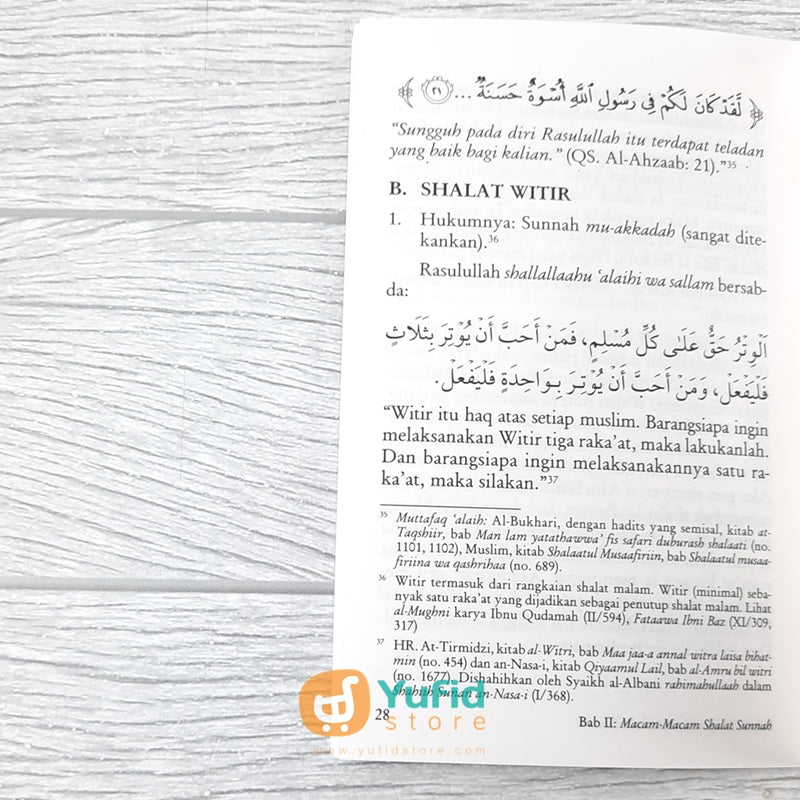 لَقَدْ كَانَ لَكُمْ فِي رَسُولِ اللَّهِ أُسْوَةٌ حَسَنَةٌ ... ٢١
“Sungguh pada diri Rasulullah itu terdapat teladan
yang baik bagi kalian.” (QS. Al-Ahzaab: 21).”³⁵
B. SHALAT WITIR
1. Hukumnya: Sunnah mu-akkadah (sangat dite-
kankan).³⁶
Rasulullah shallallaahu ‘alaihi wa sallam bersab-
da:
اَلْوِتْرُ حَقٌّ عَلَى كُلِّ مُسْلِمٍ، فَمَنْ أَحَبَّ أَنْ يُوْتِرَ بِثَلَاثٍ
فَلْيَفْعَلْ، وَمَنْ أَحَبَّ أَنْ يُوْتِرَ بِوَاحِدَةٍ فَلْيَفْعَلْ.
“Witir itu haq atas setiap muslim. Barangsiapa ingin
melaksanakan Witir tiga raka’at, maka lakukanlah.
Dan barangsiapa ingin melaksanakannya satu ra-
ka’at, maka silakan.”³⁷
³⁵ Muttafaq ‘alaih: Al-Bukhari, dengan hadits yang semisal, kitab at-
Taqshiir, bab Man lam yatathawwa’ fis safari duburash shalaati (no.
1101, 1102), Muslim, kitab Shalaatul Musaafiriin, bab Shalaatul musaa-
firiina wa qashrihaa (no. 689).
³⁶ Witir termasuk dari rangkaian shalat malam. Witir (minimal) seba-
nyak satu raka’at yang dijadikan sebagai penutup shalat malam. Lihat
al-Mughni karya Ibnu Qudamah (II/594), Fataawa Ibni Baz (XI/309,
317)
³⁷ HR. At-Tirmidzi, kitab al-Witri, bab Maa jaa-a annal witra laisa bihat-
min (no. 454) dan an-Nasa-i, kitab Qiyaamul Lail, bab al-Amru bil witri
(no. 1677). Dishahihkan oleh Syaikh al-Albani rahimahullaah dalam
Shahiih Sunan an-Nasa-i (I/368).
28
Bab II: Macam-Macam Shalat Sunnah
Yufid
store
www.yufidstore.com